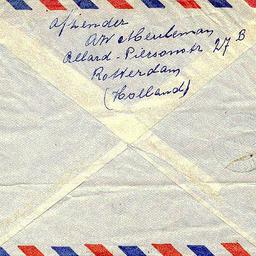 Afzender
AW Meuleman
Allard-Piersonstr 27 B
Rotterdam
(Holland)